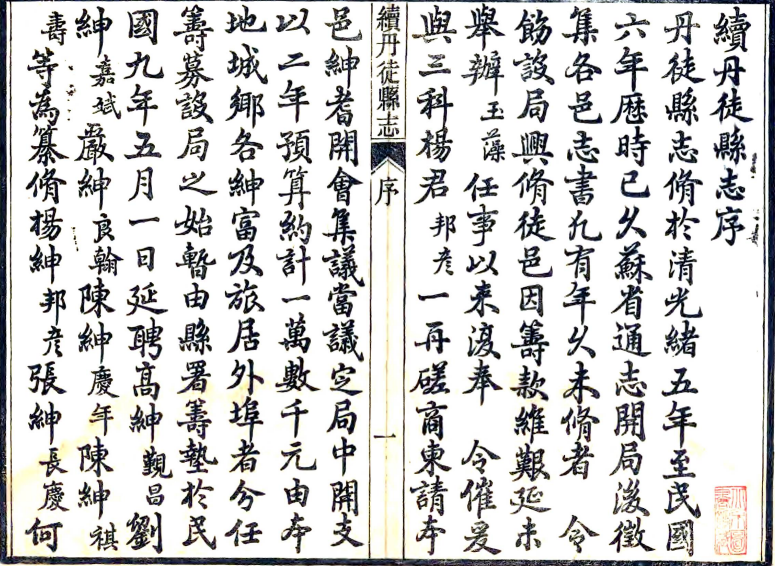 續丹徒縣志序
丹徒縣志脩於清光緒五年至民國
六年歷時已久蘇省通志開局後徵
集各邑志書凡有年久未脩者　令
飭設局興脩徒邑因籌款維艱延未
舉辦玉藻任事以來復奉　令催爰
與三科楊君邦彥一再磋商柬請本
續丹徒縣志
序
一
邑紳耆開會集議當議定局中開支
以二年預算約計一萬數千元由本
地城鄉各紳富及旅居外埠者分任
籌募設局之始暫由縣署籌墊於民
國九年五月一日延聘高紳覲昌劉
紳嘉斌嚴紳良翰陳紳慶年陳紳祺
壽等為纂脩楊紳邦彥張紳長慶何